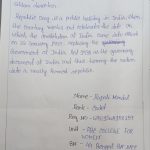 nation
Republic Day is a public holiday in India, when
the country marks and celebrates the date on
which the constitution of India came into effect
on 26 January 1950. replacing the
Government of India Act 1935 as the governing
document of India and thus turning the nation
into a newly formed republic.
Name - Rupali Mondal
Rank - Cadet
Reg -
Unit - COLLEGE FOR
WOMEN
BN -